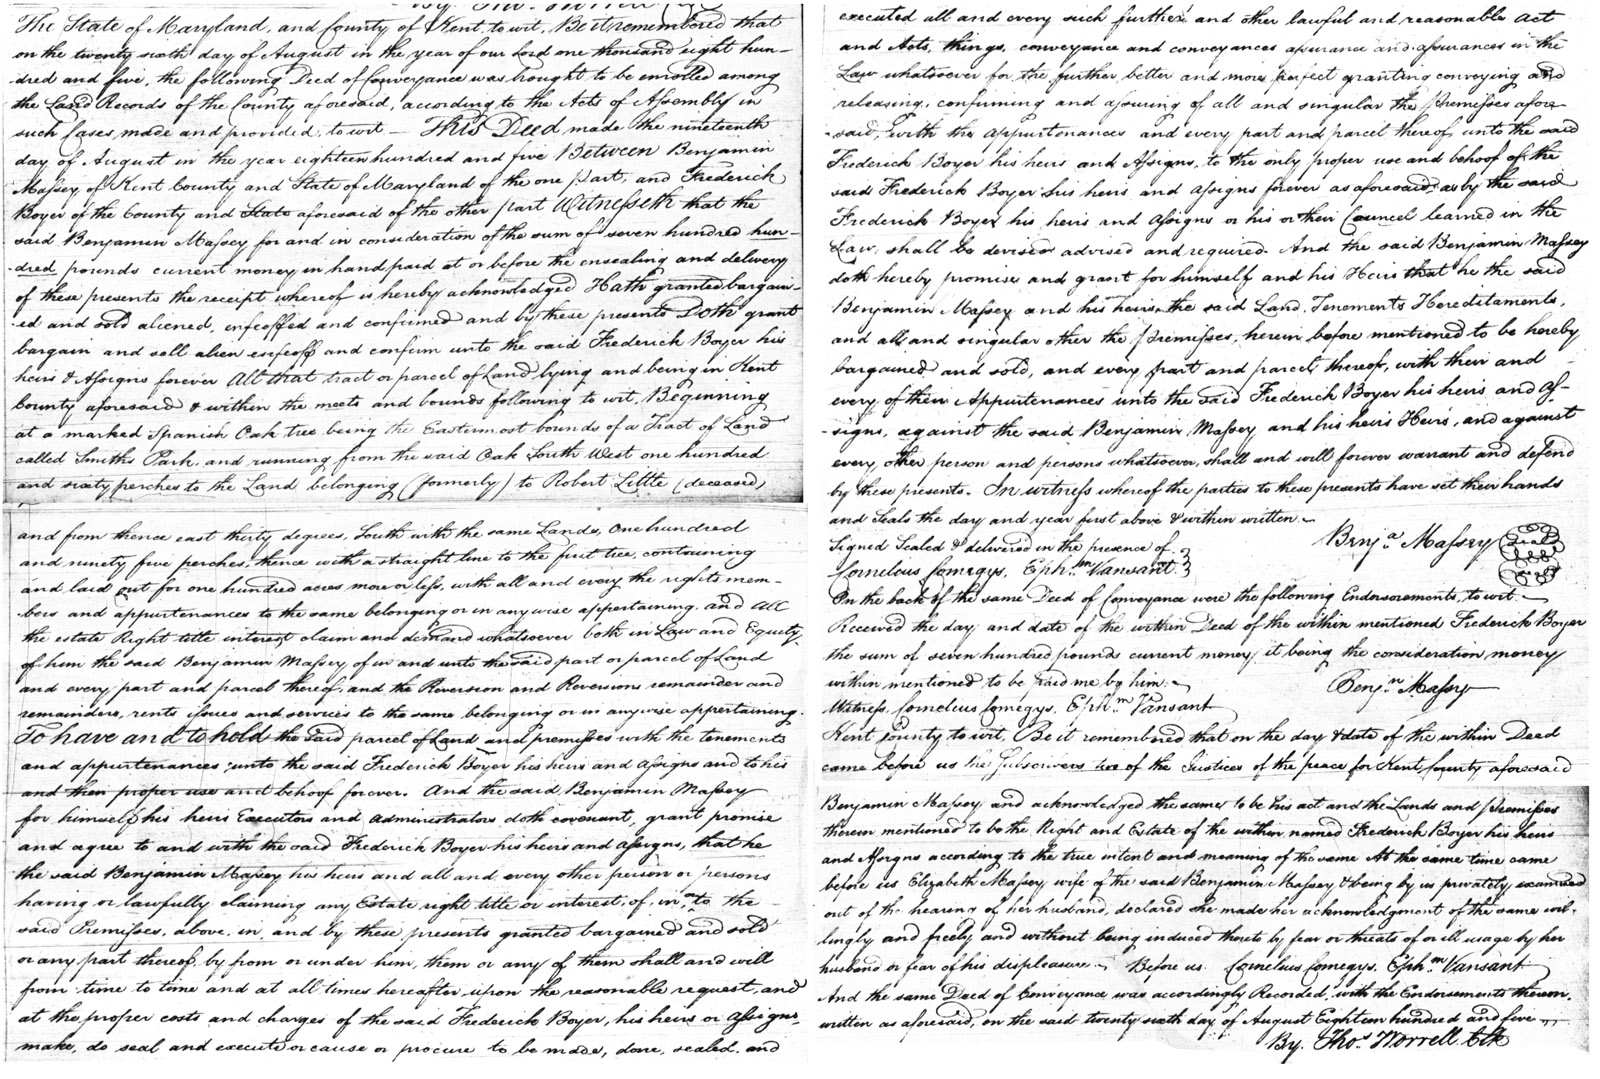 The State of Maryland, and County of Kent, to wit, Be it remembered that
on the twenty sixth day of August in the year of our Lord one thousand eight hun-
-dred and five, the following Deed of Conveyance was brought to be enrolled among
the Land Records of the County aforesaid, according to the Acts of Assembly in
such Cases made and provided, to wit — This Deed made the nineteenth
day of August in the year eighteen hundred and five Between Benjamin
Massey of Kent County and State of Maryland of the one part, and Frederick
Boyer of the County and State aforesaid of the other part Witnesseth that the
said Benjamin Massey for and in consideration of the sum of seven hundred hun-
-dred pounds current money in hand paid at or before the ensealing and delivery
of these presents the receipt whereof is hereby acknowledged Hath granted bargain-
-ed and sold aliened, enfeoffed and confirmed and by these presents Doth grant
bargain and sell alien enfeoff and confirm unto the said Frederick Boyer his
heirs & Assigns forever All that tract or parcel of Land lying and being in Kent
County aforesaid & within the meets and bounds following to wit, Beginning
at a marked Spanish Oak tree being the Eastermost bounds of a Tract of Land
called Smiths Park, and running from the said Oak South West one hundred
and sixty perches to the Land belonging (formerly) to Robert Little (deceased)
and from thence east thirty degrees, South with the same Lands, One hundred
and ninety five perches, thence with a straight line to the first tree, containing
and laid out for one hundred acres more or less, with all and every the rights mem-
bers and appurtenances to the same belonging or in any wise appertaining, and All
the estate Right title interest, claim and demand whatsoever both in Law and Equity
of him the said Benjamin Massey of in and unto the said part or parcel of Land
and every part and parcel thereof, and the Reversion and Reversions remainder and
remainders, rents issues and services to the same belonging or in any wise appertaining.
To have and to hold the said parcel of Land and premisses with the tenements
and appurtenances unto the said Frederick Boyer his heirs and Assigns and to his
and their proper use and behoof forever. And the said Benjamin Massey
for himself his heirs Executors and administrators doth covenant, grant promise
and agree to and with the said Frederick Boyer his heirs and assigns, that he
the said Benjamin Massey his heirs and all and every other person or persons
having or lawfully claiming any Estate right title or interest, of, in, to the
said Premisses, above, in, and by these presents granted bargained and sold
or any part thereof, by from or under him, them or any of them shall and will
from time to time and at all times hereafter, upon the reasonable request, and
at the proper costs and charges of the said Frederick Boyer, his heirs or Assigns,
make, do seal and execute or cause or procure to be made, done, sealed, and
executed all and every such further and other lawful and reasonable Act
and Acts, things, conveyance and conveyances assurance and assurances in the
Law whatsoever for the further, better and more perfect granting conveying and
releasing, confirming and assuring of all and singular the Premisses afore-
-said, with the appurtenances and every part and parcel thereof, unto the said
Frederick Boyer his heirs and Assigns, to the only proper use and behoof of the
said Frederick Boyer his heirs and assigns forever as aforesaid, as by the said
Frederick Boyer his heirs and Assigns or his or their Councel learned in the
Law, shall be devised advised and required. And the said Benjamin Massey
doth hereby promise and grant for himself and his Heirs that he the said
Benjamin Massey and his heirs, the said Land, Tenements Hereditaments,
and all and singular other the Premisses, herein before mentioned to be hereby
bargained and sold, and every part and parcel, thereof, with their and
every of their Appurtenances unto the said Frederick Boyer his heirs and As-
-signs, against the said Benjamin Massey and his heirs Heirs, and against
every other person and persons whatsoever, shall and will forever warrant and defend
by these presents. In witness whereof the parties to these presents have set their hands
and Seals the day and year first above & within written.
Signed Sealed & delivered in the presence of. Benj.a Massey Seal
Cornelous Comegys, Eph.m Vansant
On the back of the same Deed of Conveyance were the following Endorsements, to wit.
Received the day and date of the within Deed of the within mentioned Frederick Boyer
the sum of seven hundred pounds current money, it being the consideration money
within mentioned to be paid me by him. Benj.n Massey
Witness, Cornelius Comegys, Eph.m Vansant
Kent County to wit, Be it remembered that on the day & date of the within Deed
came before us the Subscribers two of the Justices of the peace for Kent County aforesaid
Benjamin Massey and acknowledged the same to be his act and the Lands and premisses
therein mentioned to be the Right and Estate of the within named Frederick Boyer his heirs
and Assigns according to the true intent and meaning of the same At the same time came
before us Elizabeth Massey wife of the said Benjamin Massey & being by us privately examined
out of the hearing of her husband, declared she made her acknowledgment of the same wil-
lingly and freely and without being induced thereto by fear or threats of or ill usage by her
husband or fear of his displeasure. Before us. Cornelius Comegys, Eph.m Vansant
And the same Deed of Conveyance was accordingly Recorded, with the Endorsements thereon,
written as aforesaid, on the said twenty sixth day of August Eighteen hundred and five
By. Tho.s Worrell. Clk